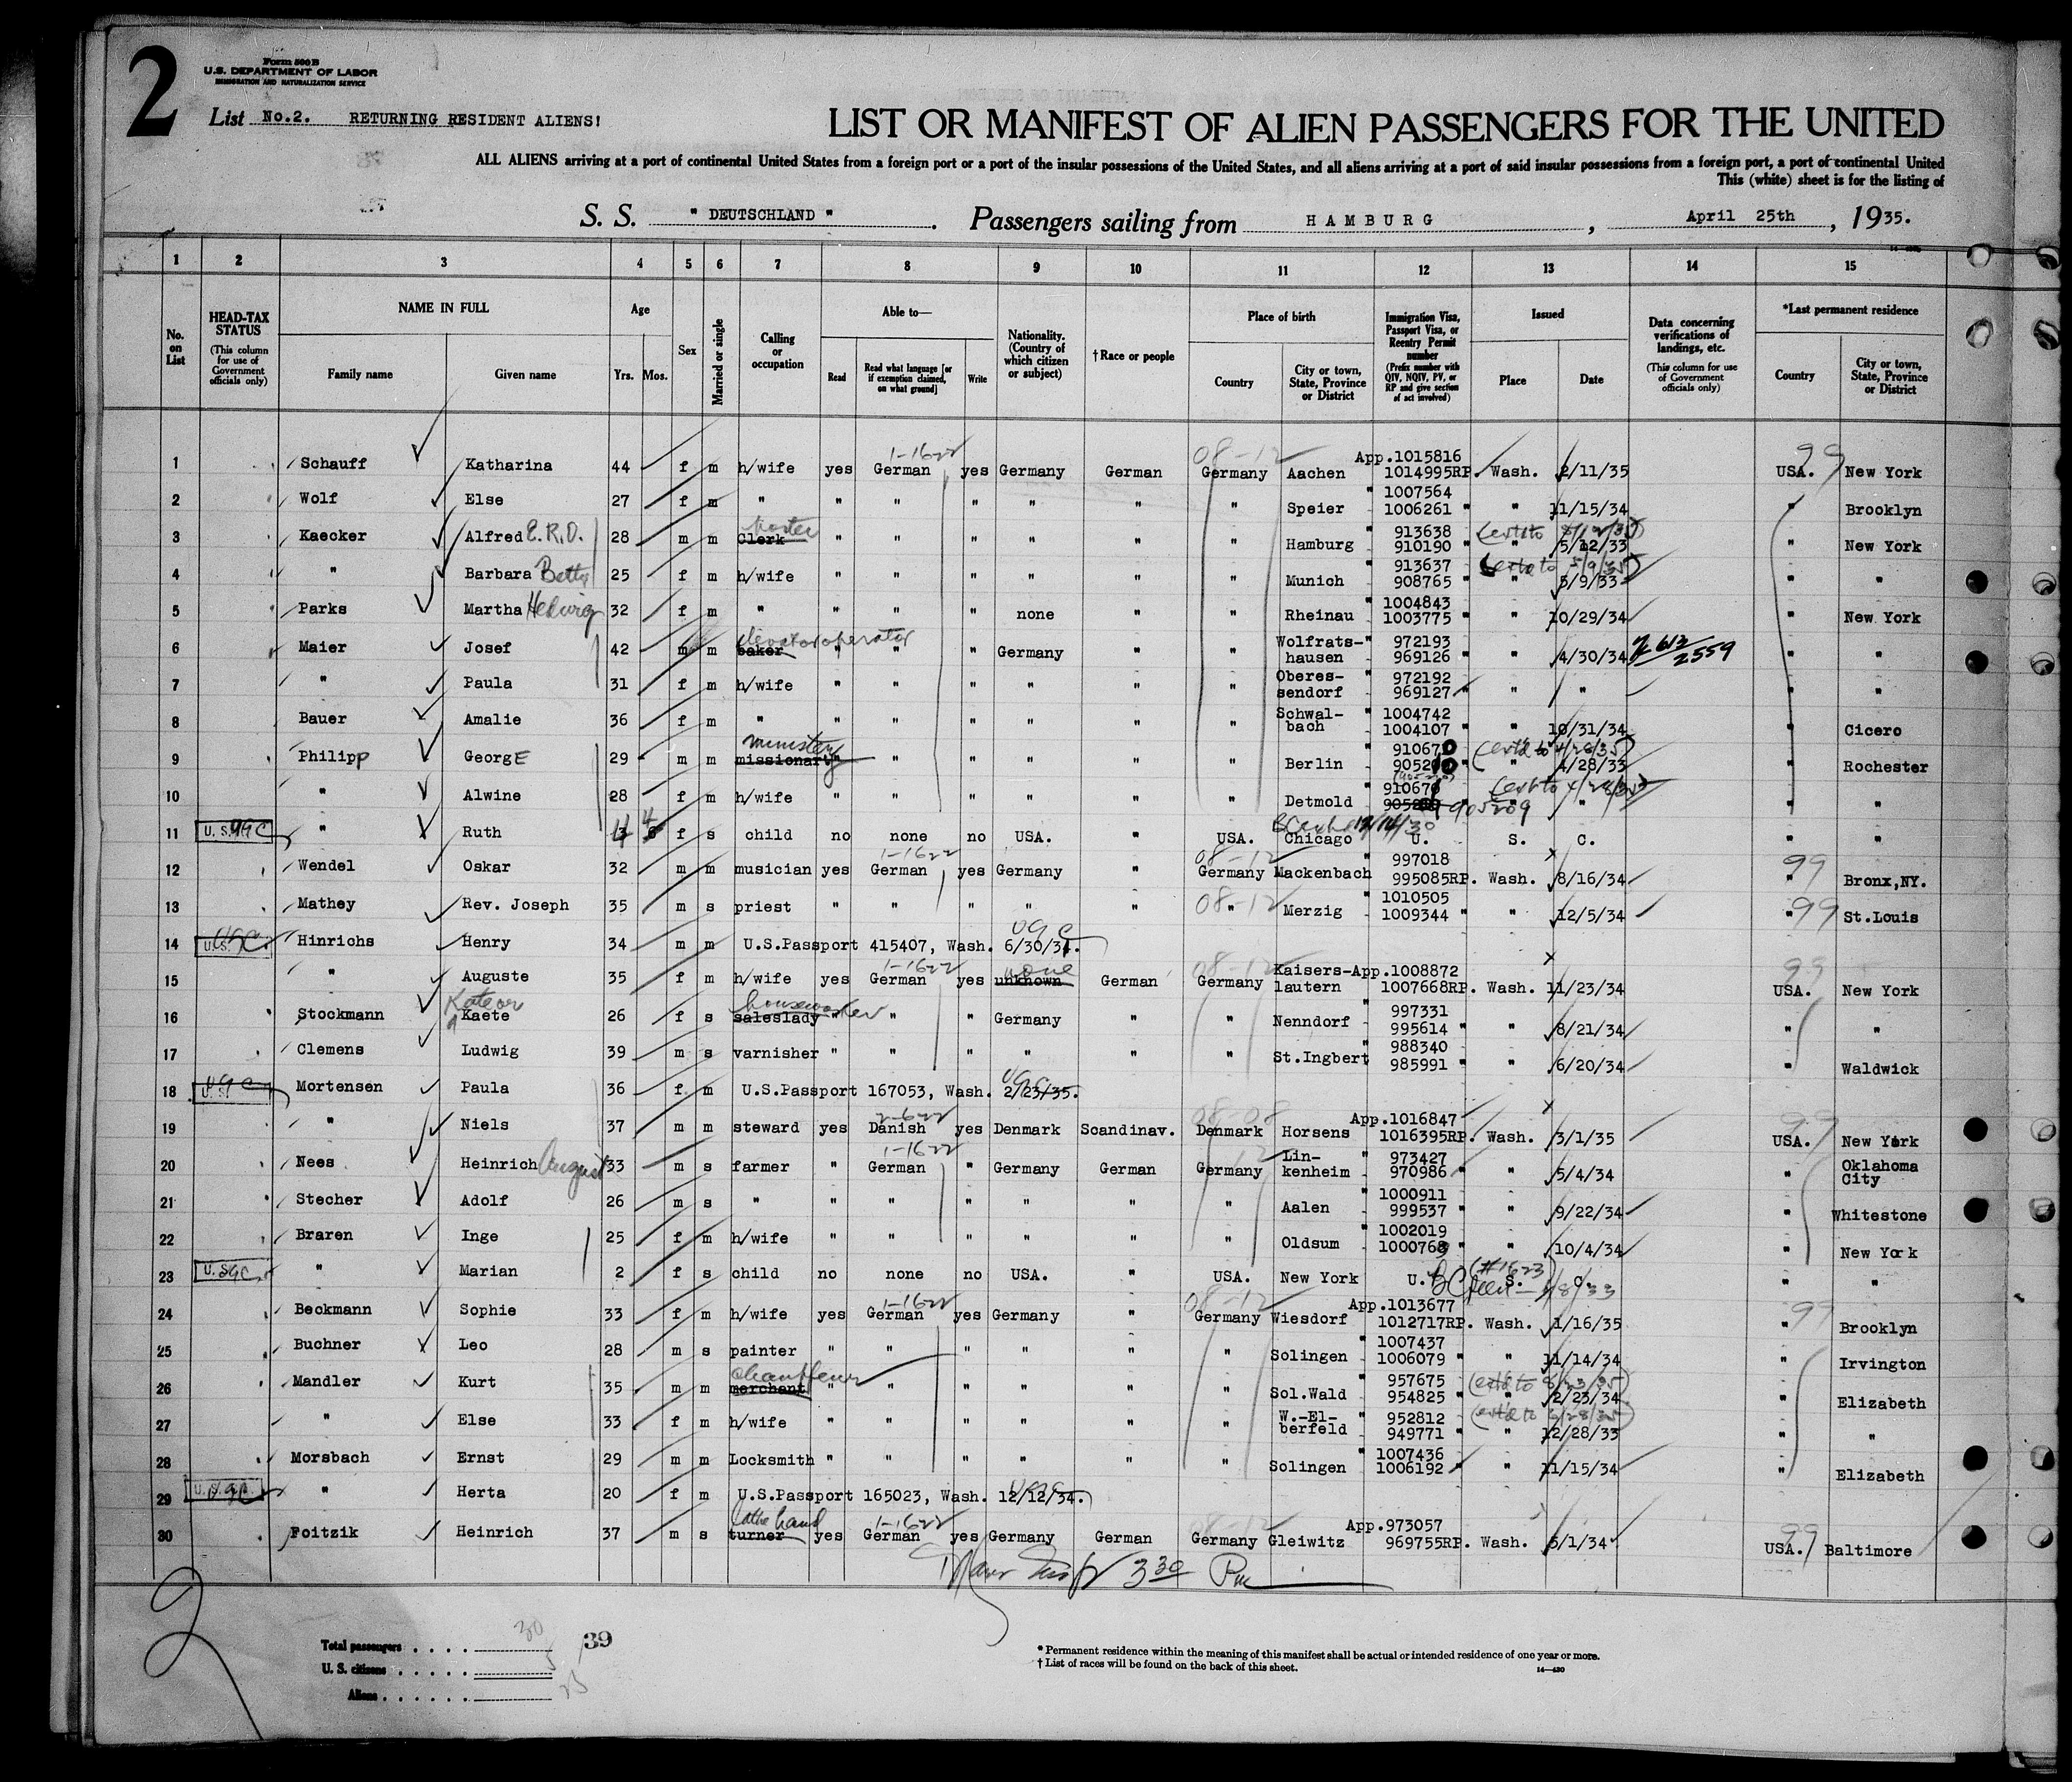 2
Form 500 B
U.S. DEPARTMENT OF LABOR
IMMIGRATION AND NATURALIZATION SERVICE
List No.2. RETURNING RESIDENT ALIENS!
LIST OR MANIFEST OF ALIEN PASSENGERS FOR THE UNITED
ALL ALIENS arriving at a port of continental United States from a foreign port or a port of the insular possessions of the United States, and all aliens arriving at a port of said insular possessions from a foreign port, a port of continental United
This (white) sheet is for the listing of
S. S. " DEUTSCHLAND ". Passengers sailing from HAMBURG, April 25th, 1935.
1 2 3 4 5 6 7 8 9 10 11 12 13 14 15
No. on List
HEAD-TAX STATUS (This column for use of Government officials only)
NAME IN FULL Family name Given name
Age Yrs. Mos.
Sex
Married or single
Calling or occupation
Able to— Read Read what language [or if exemption claimed, on what ground] Write
Nationality. (Country of which citizen or subject)
†Race or people
Place of birth Country City or town, State, Province or District
Immigration Visa, Passport Visa, or Reentry Permit number (Prefix number with QIV, NQIV, PV, or RP and give section of act involved)
Issued Place Date
Data concerning verifications of landings, etc. (This column for use of Government officials only)
*Last permanent residence Country City or town, State, Province or District
1 Schauff Katharina 44 f m h/wife yes German 1-1622 yes Germany German 08-12 Germany Aachen App.1015816 1014995RP. Wash. 2/11/35 99 USA. New York
2 Wolf Else 27 f m " " " " " " " Speier " 1007564 1006261 " " 11/15/34 " Brooklyn
3 Kaecker Alfred E.R.O. 28 m m Clerk " " " " " " Hamburg " 913638 910190 " " 5/12/33 " New York
4 " Barbara Betty 25 f m h/wife " " " " " " Munich " 913637 908765 " " 5/9/33 (extd to 5/9/35) " "
5 Parks Martha Hedwig 32 f m " " " " none " " Rheinau " 1004843 1003775 " " 10/29/34 " New York
6 Maier Josef 42 m m baker elevator operator " " " Germany " " Wolfrats-hausen " 972193 969126 " " 4/30/34 2559 " "
7 " Paula 31 f m h/wife " " " " " " Oberes-sendorf " 972192 969127 " " " " "
8 Bauer Amalie 36 f m " " " " " " " Schwal-bach " 1004742 1004107 " " 10/31/34 " Cicero
9 Philipp GeorgE 29 m m missionary minister " " " " " " Berlin " 910670 905210 " " 4/28/33 (extd to 4/28/35) " Rochester
10 " Alwine 28 f m h/wife " " " " " " Detmold " 910671 905209 " " " " "
11 U.S. " Ruth 4 4 f s child no none no USA. " USA. Chicago U. S. C. " "
12 Wendel Oskar 32 m m musician yes German 1-1622 yes Germany " 08-12 Germany Mackenbach " 997018 995085RP. Wash. 8/16/34 99 " Bronx,NY.
13 Mathey Rev. Joseph 35 m s priest " " " " " 08-12 " Merzig " 1010505 1009344 " " 12/5/34 99 " St.Louis
14 U.S. USC Hinrichs Henry 34 m m U.S.Passport 415407, Wash. 6/30/31. USC
15 " Auguste 35 f m h/wife yes German 1-1622 yes unknown none German 08-12 Germany Kaisers-lautern App.1008872 1007668RP. Wash. 11/23/34 99 USA. New York
16 Stockmann Kate or Kaete 26 f s saleslady houseworker " " " Germany " " Nenndorf " 997331 995614 " " 8/21/34 " "
17 Clemens Ludwig 39 m s varnisher " " " " " " St.Ingbert " 988340 985991 " " 6/20/34 " Waldwick
18 U.S. USC Mortensen Paula 36 f m U.S.Passport 167053, Wash. 2/23/35. USC
19 " Niels 37 m m steward yes Danish 2-622 yes Denmark Scandinav. 08-08 Denmark Horsens App.1016847 1016395RP. Wash. 3/1/35 99 USA. New York
20 Nees Heinrich August 33 m s farmer " German 1-1622 " Germany German Germany Lin-kenheim " 973427 970986 " " 5/4/34 " Oklahoma City
21 Stecher Adolf 26 m s " " " " " " " Aalen " 1000911 999537 " " 9/22/34 " Whitestone
22 Braren Inge 25 f m h/wife " " " " " " Oldsum " 1002019 1000763 " " 10/4/34 " New York
23 U.S. " Marian 2 f s child no none no USA. " USA. New York U. S. C. (#1623) " "
24 Beckmann Sophie 33 f m h/wife yes German 1-1622 yes Germany " 08-12 Germany Wiesdorf App.1013677 1012717RP. Wash. 1/16/35 99 " Brooklyn
25 Buchner Leo 28 m s painter " " " " " " Solingen " 1007437 1006079 " " 11/14/34 " Irvington
26 Mandler Kurt 35 m m merchant chauffeur " " " " " " Sol.Wald " 957675 954825 " " 2/23/34 (extd to 8/23/35) " Elizabeth
27 " Else 33 f m h/wife " " " " " " W.-El-berfeld " 952812 949771 " " 12/28/33 " "
28 Morsbach Ernst 29 m m Locksmith " " " " " " Solingen " 1007436 1006192 " " 11/15/34 " Elizabeth
29 " Herta 20 f m U.S.Passport 165023, Wash. 12/12/34.
30 Foitzik Heinrich 37 m s turner lathe hand yes German 1-1622 yes Germany German Germany Gleiwitz App.973057 969755RP. Wash. 5/1/34 99 USA. Baltimore
3 30 Pm
Total passengers 30 39
U. S. citizens 5
Aliens 25
* Permanent residence within the meaning of this manifest shall be actual or intended residence of one year or more.
† List of races will be found on the back of this sheet. 14—430